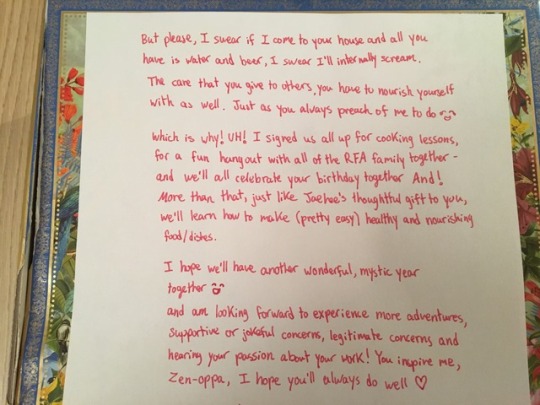 But please, I swear if I come to your house and all you
have is water and beer, I swear I'll internally scream.
The care that you give to others, you have to nourish yourself
with as well. Just as you always preach of me to do
which is why! UH! I signed us all up for cooking lessons,
for a fun hangout with all of the RFA family together -
and we'll all celebrate your birthday together And!
More than that, just like Jaehee's thoughtful gift to you,
we'll learn how to make (pretty easy) healthy and nourishing
food/dishes.
I hope we'll have another wonderful, mystic year
together
and am looking forward to experience more adventures,
supportive or jokeful concerns, legitimate concerns and
hearing your passion about your work! You inspire me,
Zen-oppa, I hope you'll always do well ♡